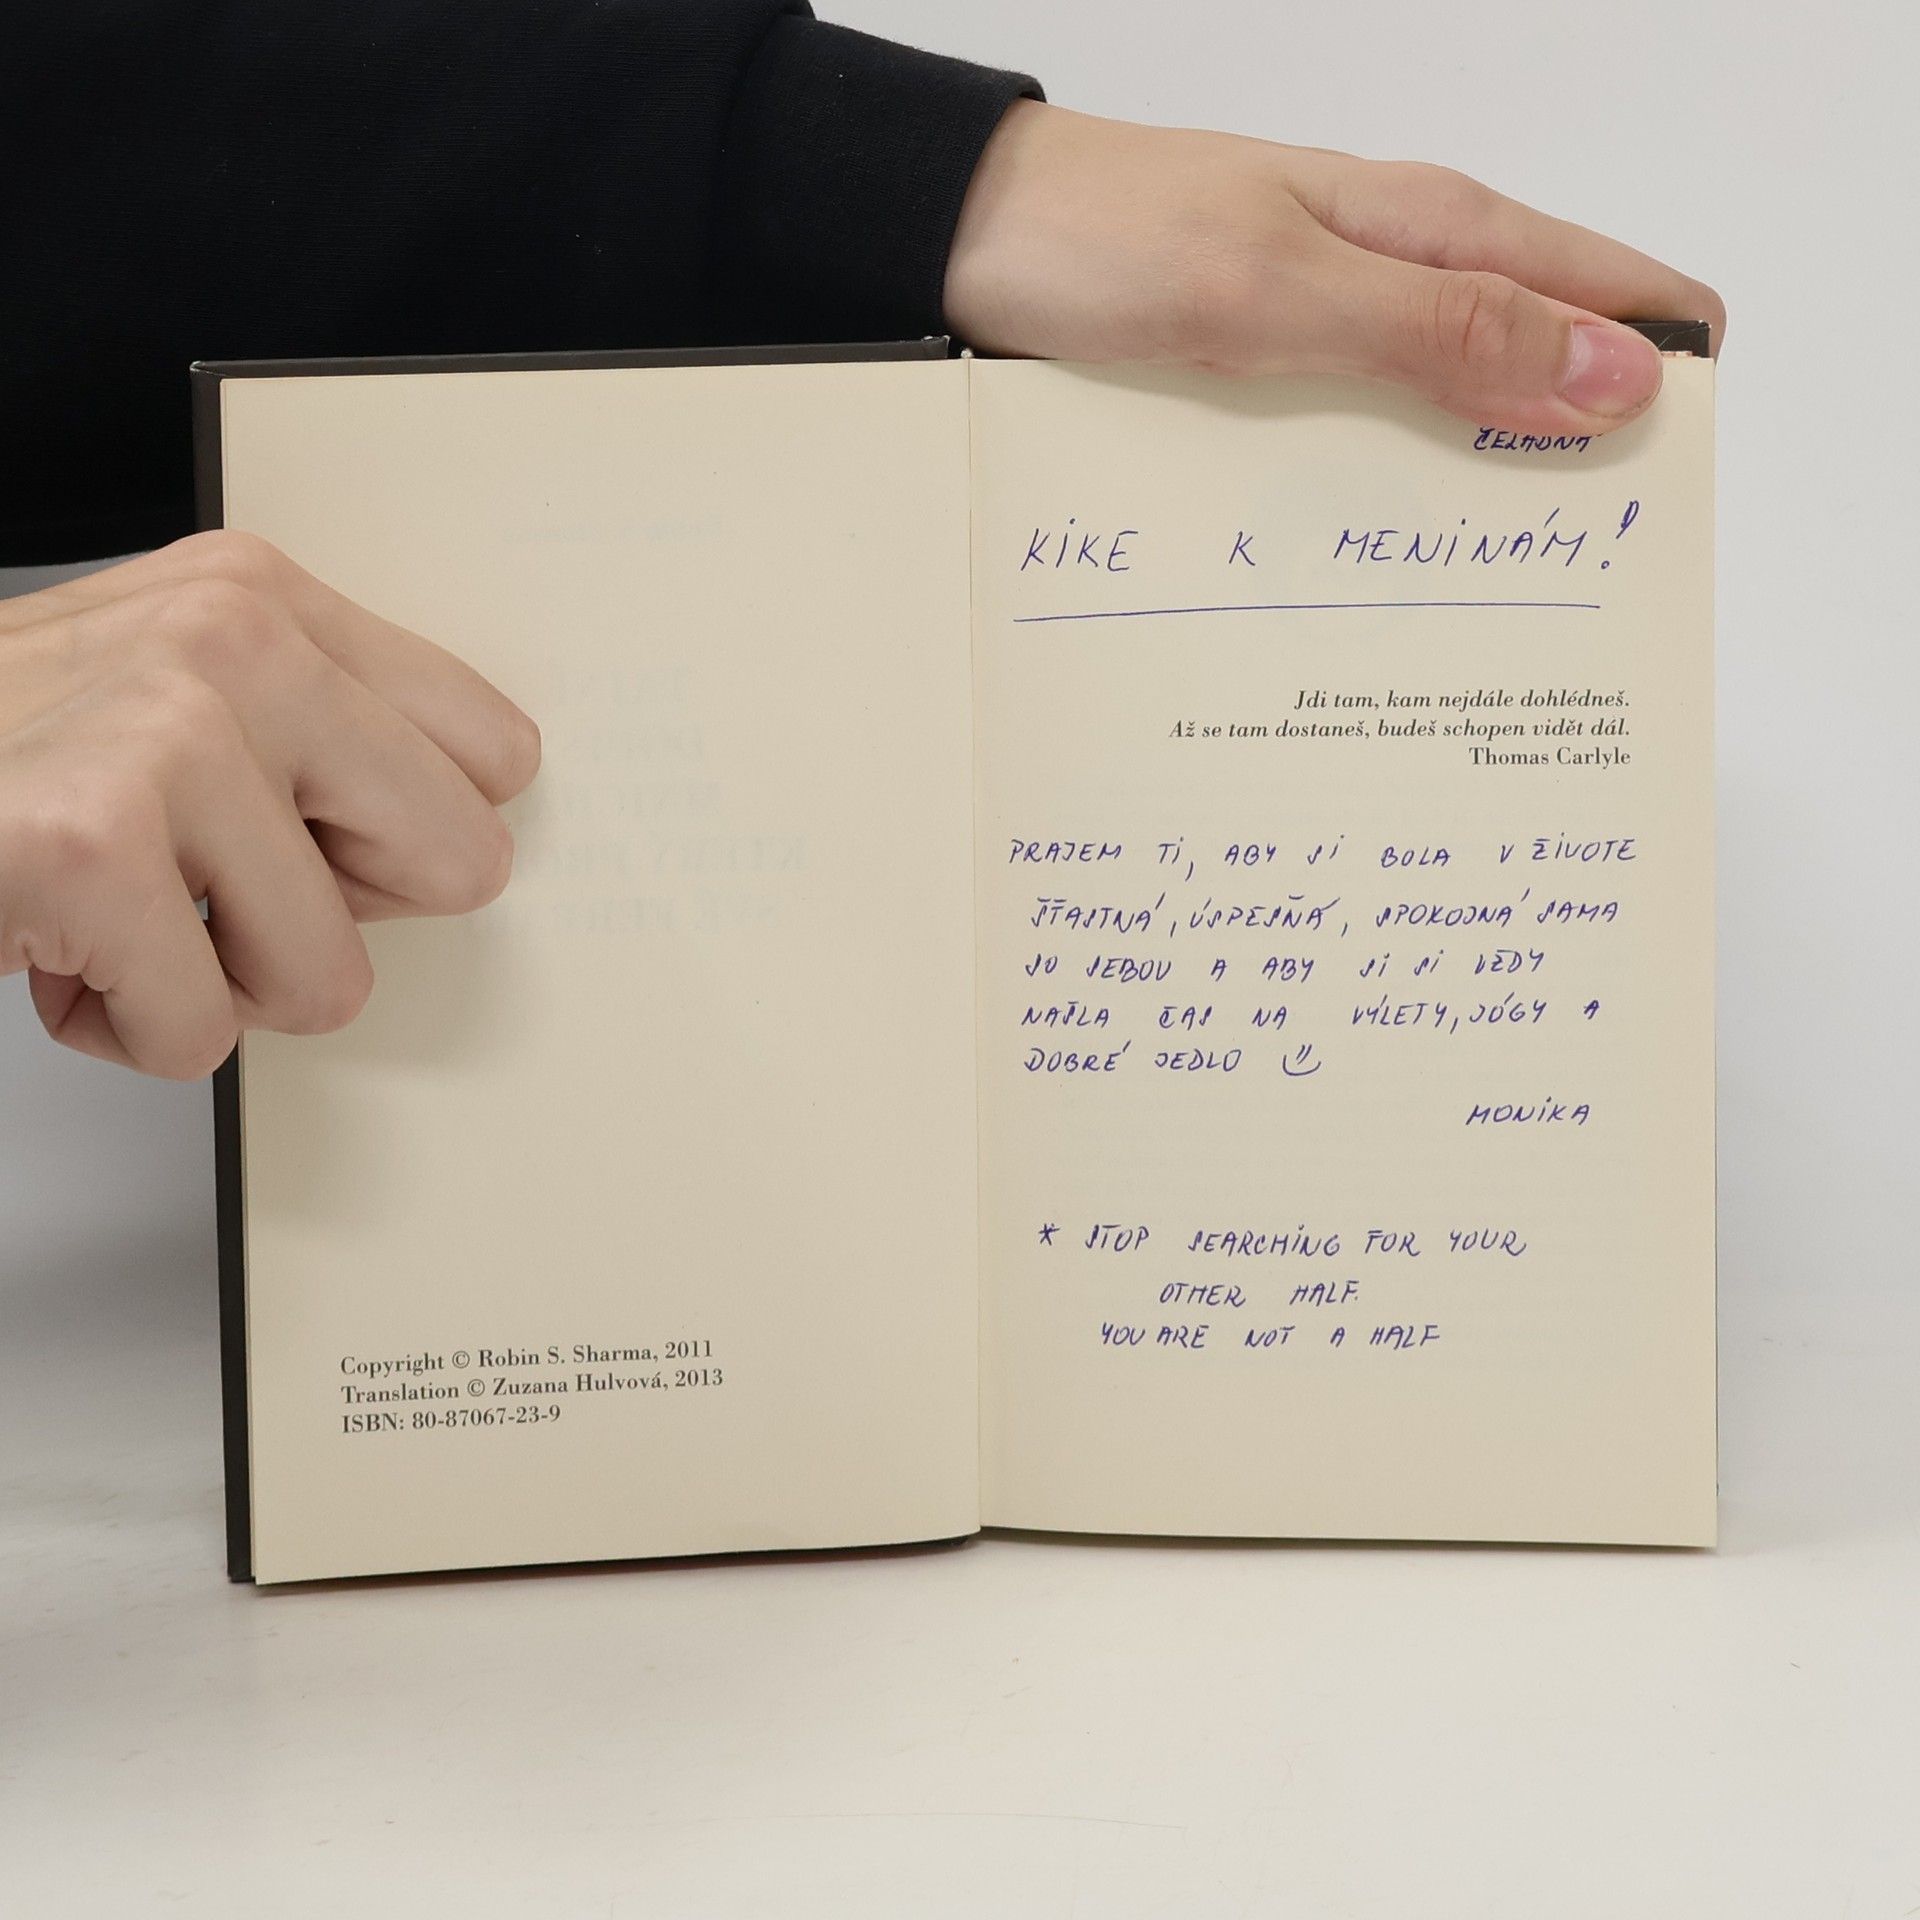 Copyright © Robin S. Sharma, 2011
Translation © Zuzana Hulvová, 2013
ISBN: 80-87067-23-9
ČELADNÁ
KIKE K MENINÁM!
Jdi tam, kam nejdále dohlédneš.
Až se tam dostaneš, budeš schopen vidět dál.
Thomas Carlyle
PRAJEM TI, ABY SI BOLA V ŽIVOTE
ŠŤASTNÁ, ÚSPEŠNÁ, SPOKOJNÁ SAMA
SO SEBOU A ABY SI SI VŽDY
NAŠLA ČAS NA VÝLETY, JÓGY A
DOBRÉ JEDLO
MONIKA
* STOP SEARCHING FOR YOUR
OTHER HALF.
YOU ARE NOT A HALF